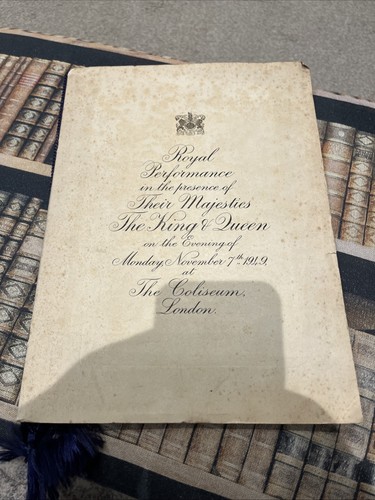 Royal
Performance
in the presence of
Their Majesties
The King & Queen
on the Evening of
Monday, November 7th 1949,
at
The Coliseum,
London.